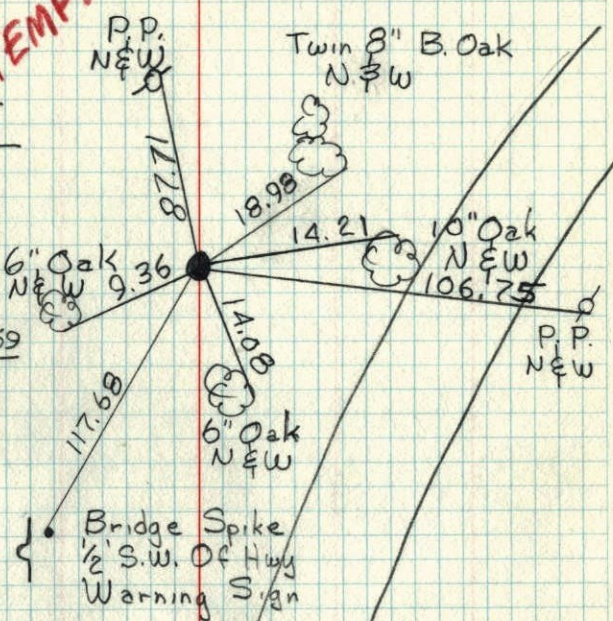 TEMP
P.P.
N&W
Twin 8" B. Oak
N&W
87.71
18.98
14.21
10" Oak
N&W
6" Oak
N&W
9.36
106.75
P.P.
N&W
14.08
6" Oak
N&W
117.68
Bridge Spike
1/2' S.W. Of Hwy
Warning Sign